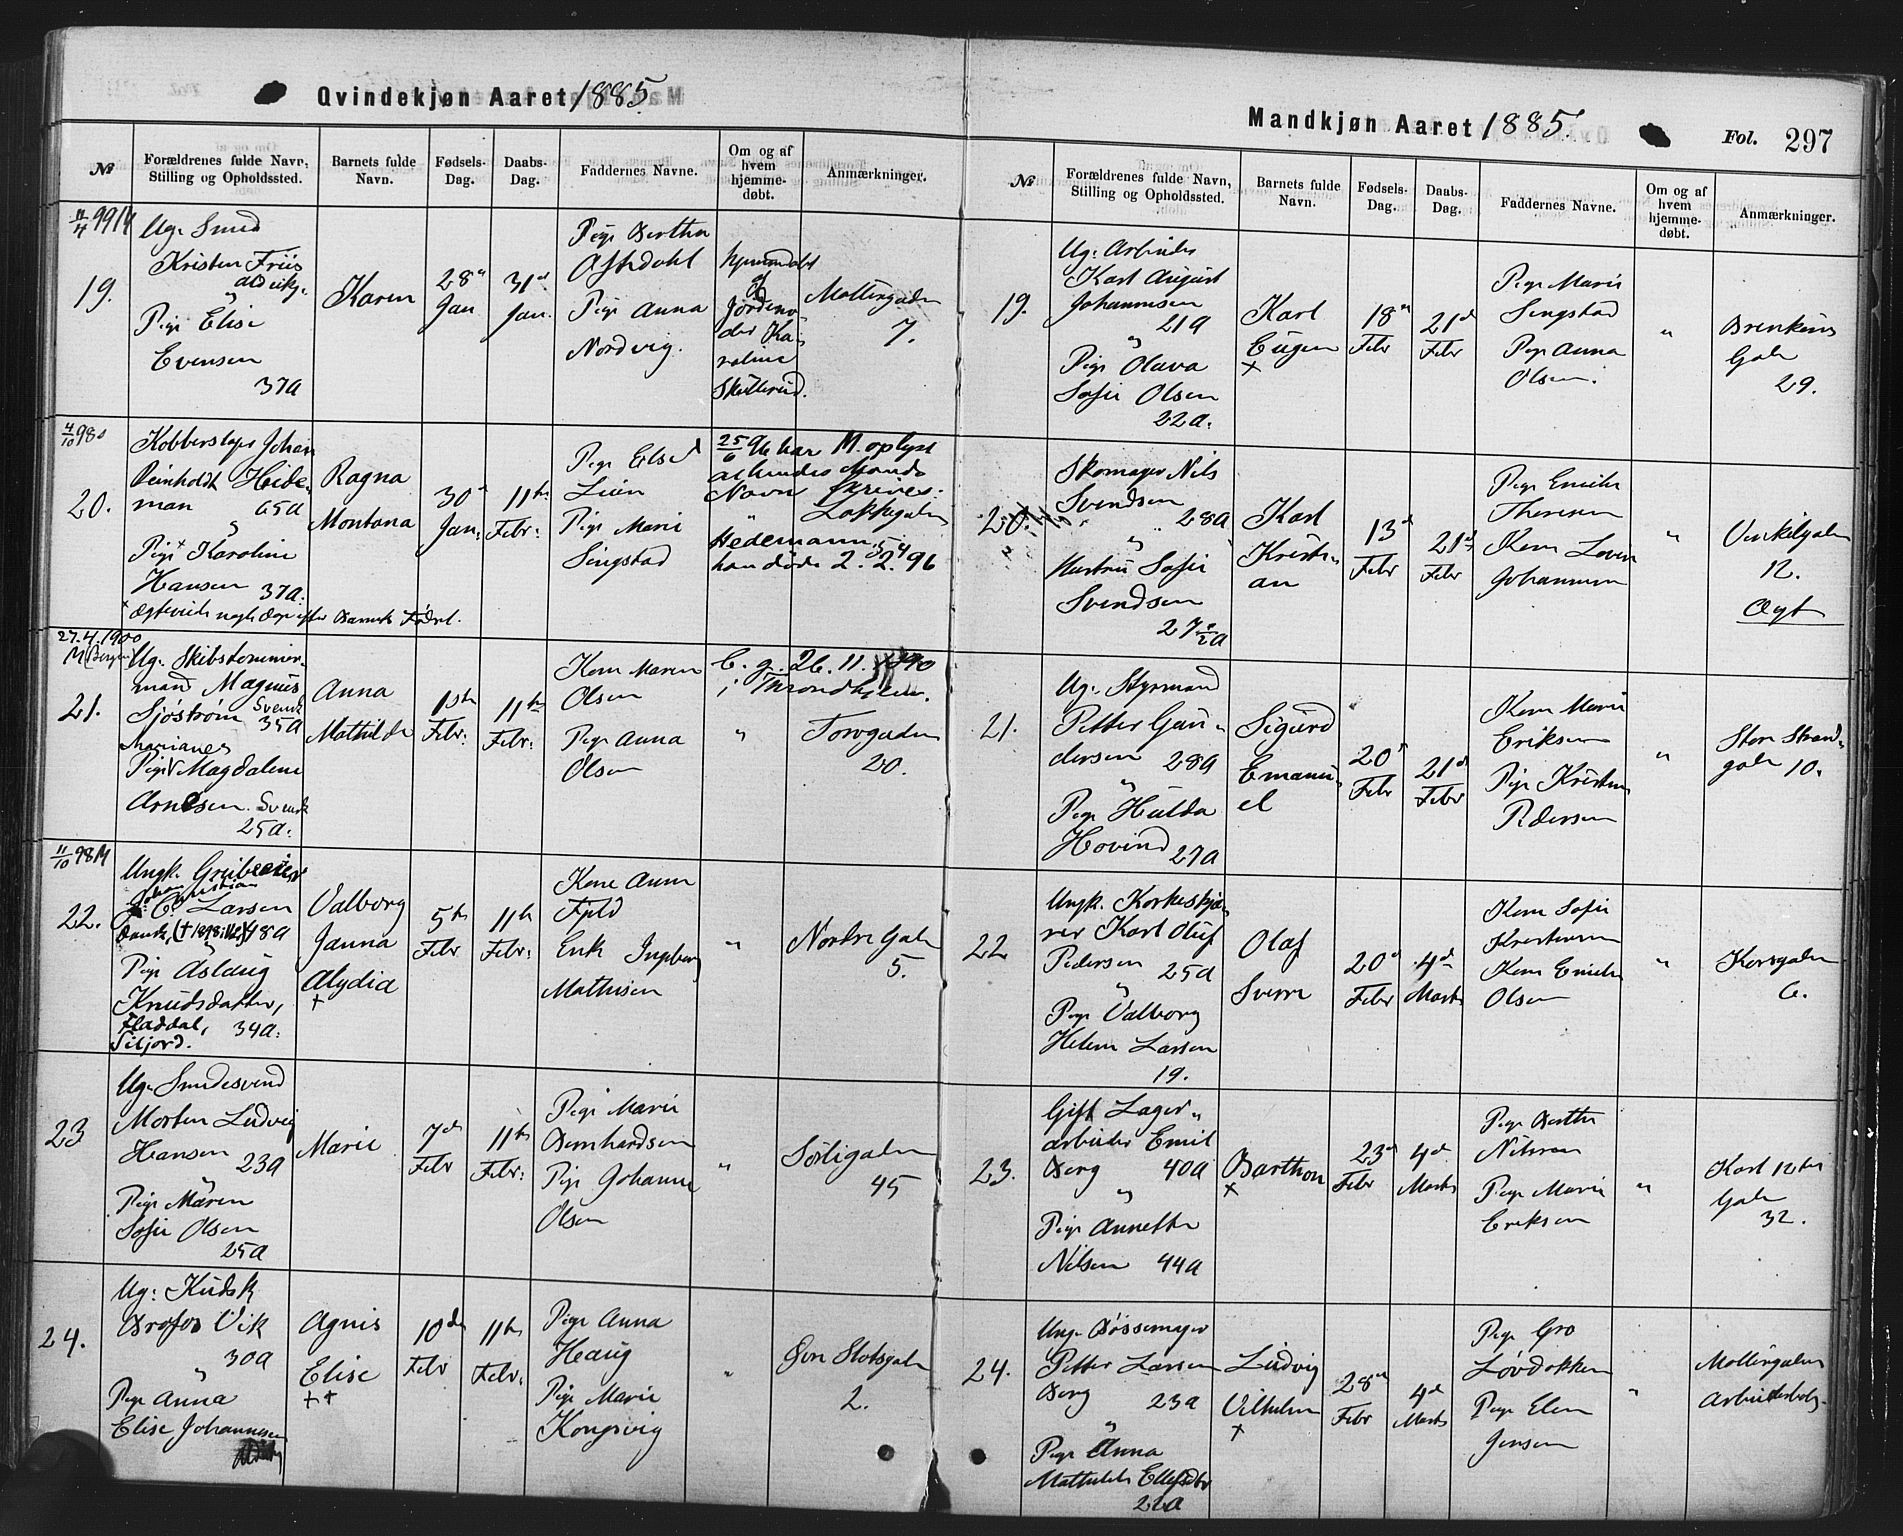 Qvindekjøn Aaret 1885
№
Forældrenes fulde Navn,
Stilling og Opholdssted.
Barnets fulde
Navn.
Fødsels-
Dag.
Daabs-
Dag.
Faddernes Navne.
Om og af
hvem
hjemme-
døbt.
Anmærkninger.
19.
Ug. Smed
Kristen Friis
Pige Elise
Evensen
37a
Karen
28
Jan
31
Jan.
Pige Berthe
Pige Anna
Nordvig.
Jordemo
der Ka
roline
Skullerud.
Møllergaden
7.
20.
Kobberslager Johan
Reinholdt Heide-
man 65a
Pige Karoline
Hansen 37a.
Ragna
Montana
30
Jan.
11te
Febr:
Pige Else
Lien
Pige Marie
Singstad
25/6 96 har M. oplyst
at hendes Mands
Navn skrives:
Hedemann,
han døde 2.2.96
27.4.1900
M (Bergen)
21.
Ug. Skibstømmer-
mand Magnus
Sjöström Svensk
35a
Marianes
Pige Magdalene
Arnesen. Svensk
25a.
Anna
Mathilde
1ste
Febr.
11te
Febr:
Kone Maren
Olsen
Pige Anna
Olsen
26.11.1890
i Throndhjem.
Torvgaden
20.
11/10 98 M
22.
Ungk. Grubeeier
J. C. Larsen
Dansk, 48a
Pige Aslaug
Knudsdatter,
Fladdal, 34a.
Siljord.
Valborg
Janna
Alydia
+
5te
Febr
11te
Febr:
Kone Anna
Fjeld
Enk Ingeborg
Mathisen
"
Nordre Gade
5.
23
Ug. Smedesvend
Morten Ludvig
Hansen 23a
Pige Maren
Sofie Olsen
25a
Marie
7de
Febr
11te
Febr:
Pige Marie
Bernhardsen
Pige Johanne
Olsen
"
Sørligaden
45
24.
Ug: Kudsk
Brofos Vik
30a
Pige Anna
Elise Johannesen
Agnes
Elise
++
10de
Febr
11te
Febr.
Pige Anna
Haug
Pige Marie
Kongsvig
"
Øvre Slotsgade
2.
Mandkjøn Aaret 1885.
Fol. 297
№
Forældrenes fulde Navn,
Stilling og Opholdssted.
Barnets fulde
Navn.
Fødsels-
Dag.
Daabs-
Dag.
Faddernes Navne.
Om og af
hvem
hjemme-
døbt.
Anmærkninger.
19.
Ug. Arbeider
Karl August
Johannesen
21a
Pige Olava
Sofie Olsen
22a.
Karl
Eugen
+
18
Febr
21d
Febr
Pige Marie
Singstad
Pige Anna
Olsen.
"
Brenneris
Gade
29.
20.
Skomager Nils
Svendsen
28a
Hustru Sofie
Svendsen
27 1/2 a
Karl
Kristi-
an
13d
Febr
21d
Febr
Pige Emilie
Thoresen
Kone Lovise
Johannesen
"
Vinkelgaden
12.
Ægt
21.
Ug. Styrmand
Petter Gun-
dersen 28a
Pige Hulda
Hovind 27a
Sigurd
Emanu-
el
20
Febr
21d
Febr
Kone Marie
Eriksen
Pige Kristine
Pedersen
"
Store Strand-
gade 10.
22
Ungk. Korkeskjæ-
rer Karl Oluf
Pedersen 25a
Pige Valborg
Helene Larsen
19.
Olaf
Sverre
20d
Febr
4d
Marts
Kone Sofie
Kristensen
Kone Emilie
Olsen
"
Korsgaden
6.
23.
Gift Lager-
arbeider Emil
Berg 40a
Pige Annette
Nilsen 44a
Barthon
+
23d
Febr
4d
Marts
Pige Berthe
Nilsen
Pige Marie
Eriksen
"
Karl 12tes
Gade
32.
24.
Ung. Bøssemager
Petter Larsen
Berg 23a
Pige Anna
Mathilde Ellefsdtr
22a
Ludvig
Vilhelm
+
28d
Febr
4d
Marts
Pige Gro
Løvdokken
Pige Elen
Jensen
"
Møllergaden